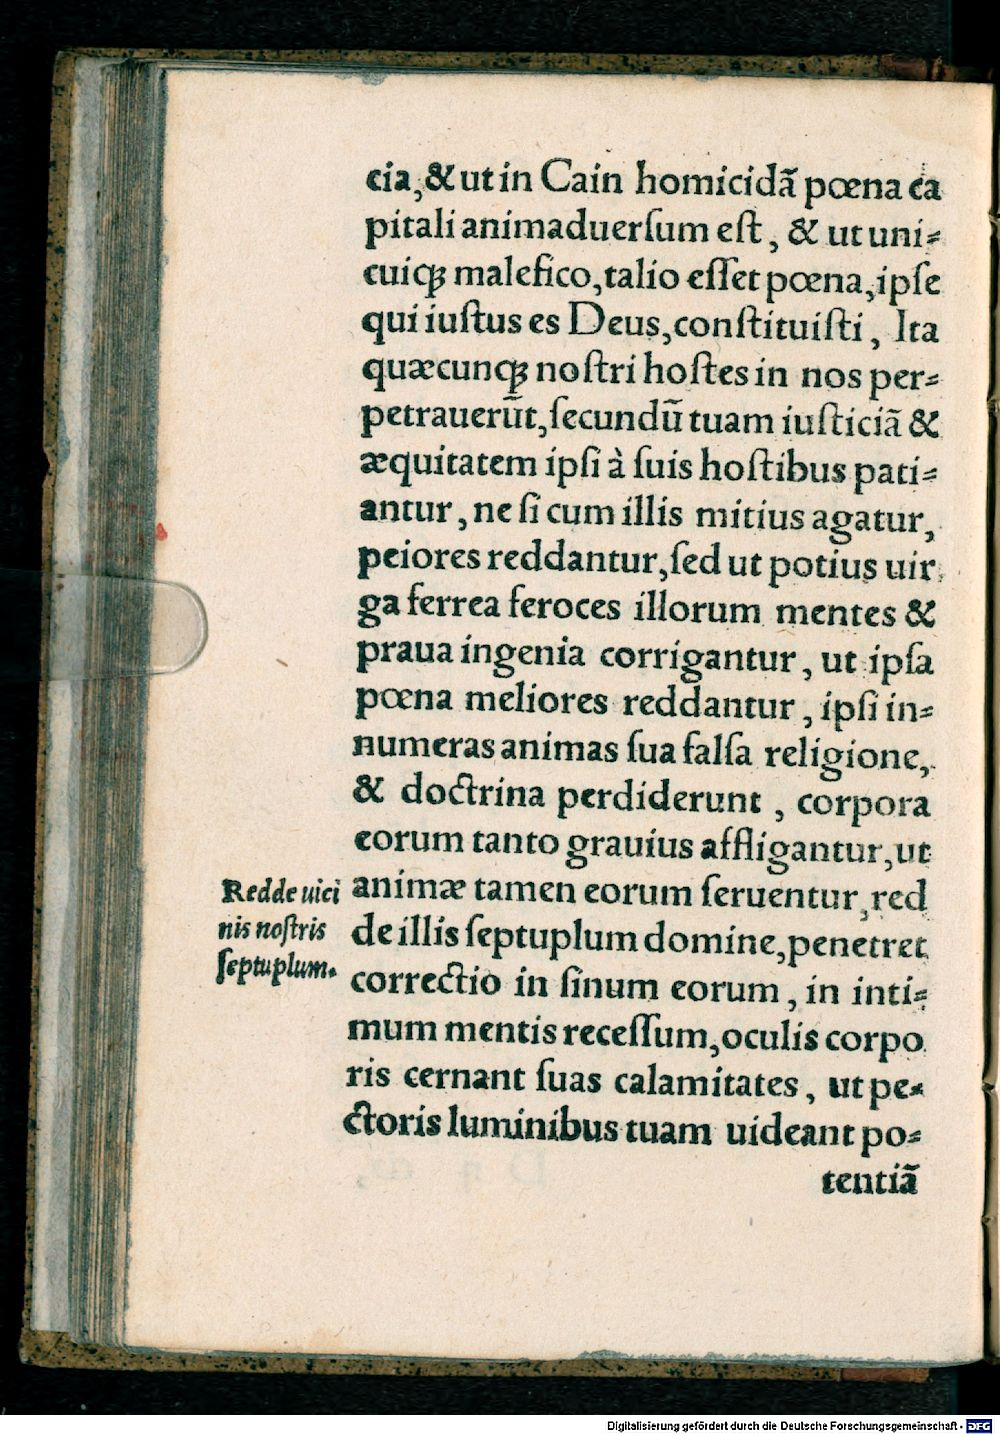 cia, & ut in Cain homicidã pœna ca
pitali animaduerſum eſt, & ut uni⸗
cuiqꝫ malefico, talio eſſet pœna, ipſe
qui iuſtus es Deus, conſtituiſti, Ita
quæcunqꝫ noſtri hoſtes in nos per⸗
petrauerũt, ſecundũ tuam iuſticiã &
æquitatem ipſi à ſuis hoſtibus pati⸗
antur, ne ſi cum illis mitius agatur,
peiores reddantur, ſed ut potius uir
ga ferrea feroces illorum mentes &
praua ingenia corrigantur, ut ipſa
pœna meliores reddantur, ipſi in⸗
numeras animas ſua falſa religione,
& doctrina perdiderunt, corpora
eorum tanto grauius affligantur, ut
animæ tamen eorum ſeruentur, red
de illis ſeptuplum domine, penetret
correctio in ſinum eorum, in inti⸗
mum mentis receſſum, oculis corpo
ris cernant ſuas calamitates, ut pe⸗
ctoris luminibus tuam uideant po⸗
tentiã
Redde uici
nis noſtris
ſeptuplum.
Digitalisierung gefördert durch die Deutsche Forschungsgemeinschaft - DFG